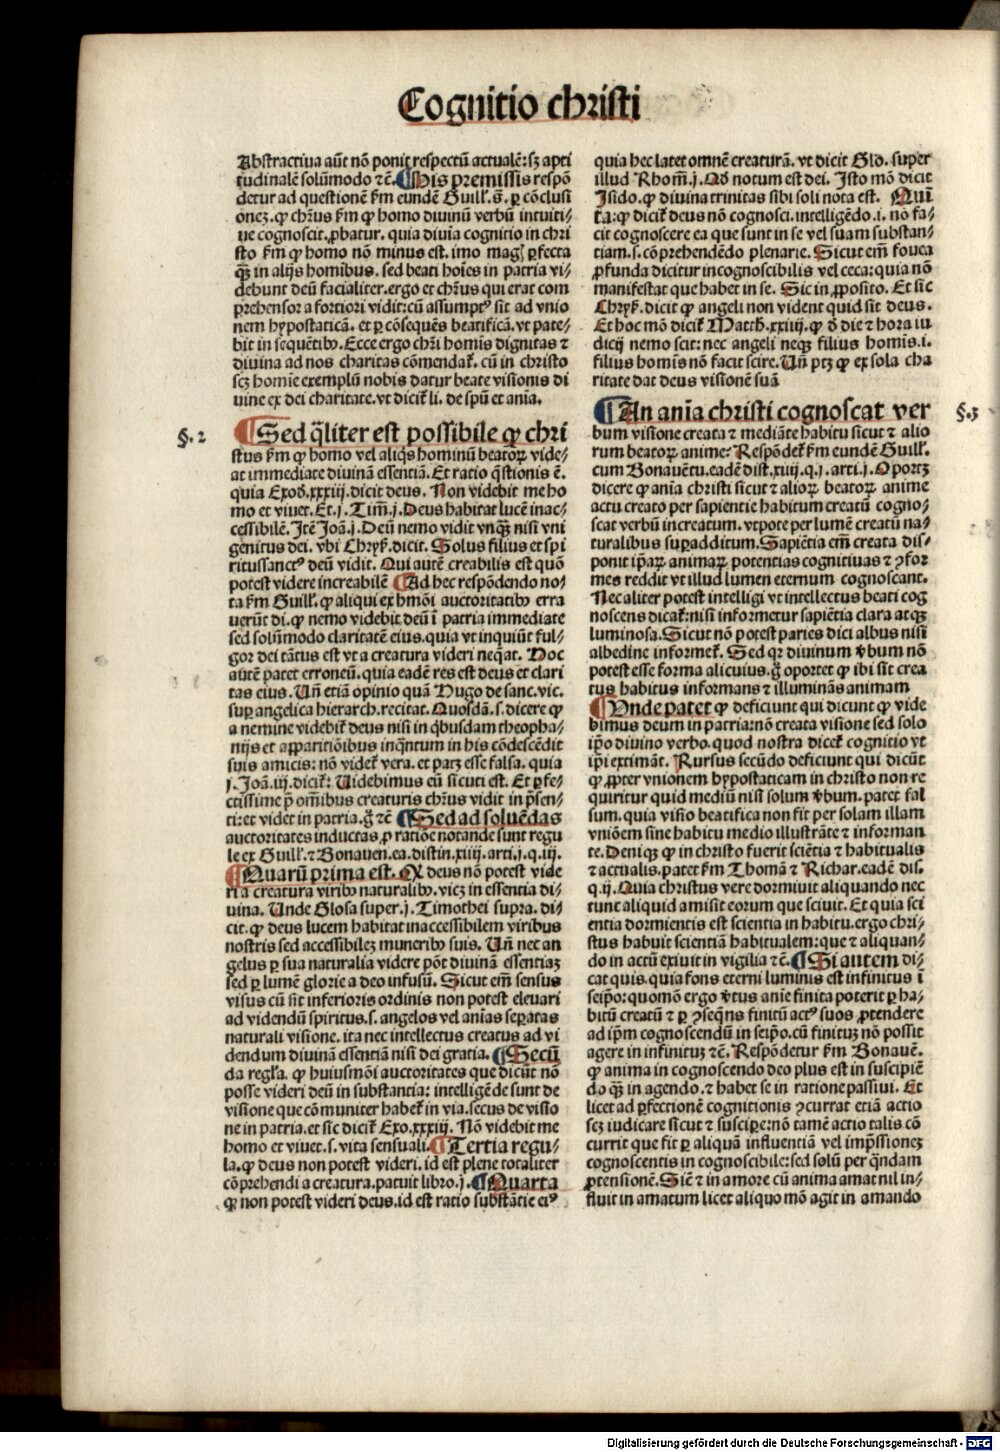 Cognitio christi
Abstractiua aūt nō ponit respectū actualē: sꝫ apti
tudinalē solūmodo ⁊c̄. ¶ His premissis respō
detur ad questionē ẜm eundē Guill'. ꝙ. ꝑ cōclusi
onēz. ꝙ chr̄us ẜm ꝙ homo diuinū verbū intuiti⸗
ue cognoscit. ꝓbatur. quia diuīa cognitio in chri
sto ẜm ꝙ homo nō minus est. imo mag} ꝑfecta
qꝫ̄ in alijs homībus. sed beati hoīes in patria vi⸗
debunt deū facialiter. ergo et chr̄us qui erat com
prehensor a fortiori vidit: cū assumptꝰ sit ad vnio
nem hypostaticā. et ꝑ cōsequēs beatificā. vt pate⸗
bit in sequētibꝰ. Ecce ergo chr̄i homīs dignitas ⁊
diuina ad nos charitas cōmendat̄. cū in christo
scꝫ homīe exemplū nobis datur beate visionis di
uine ex dei charitate. vt dicit̄ li. de spū et aīa.
§. 2
¶ Sed q̄liter est possibile ꝙ chri
stus ẜm ꝙ homo vel aliqs hominū beatoꝝ vide⸗
at immediate diuinā essentiā. Et ratio q̄stionis ē.
quia Exod. xxxiij. dicit deus. Non videbit me ho
mo et viuet. Et. j. Tim̄. j. Deus habitat lucē inac⸗
cessibilē. Itē Joā. j. Deū nemo vidit vnqꝫ̄ nisi vni
genitus dei. vbi Chryſ. dicit. Solus filius et spi
ritussanctꝰ deū vidit. Qui autē creabilis est quō
potest videre increabilē ¶ Ad hec respōdendo no⸗
ta ẜm Guill'. ꝙ aliqui ex hmōi auctoritatibꝰ erra
uerūt di. ꝙ nemo videbit deū ī patria immediate
sed solūmodo claritatē eius. quia vt inquiūt ful⸗
gor dei tātus est vt a creatura videri neq̄at. Hoc
autē patet erroneū. quia eadē res est deus et clari
tas eius. Un̄ etiā opinio quā Hugo de sanc. vic.
suꝑ angelica hierarch. recitat. Quosdā. s. dicere ꝙ
a nemine videbit̄ deus nisi in q̄busdam theopha⸗
nijs et apparitiōibus inq̄ntum in his cōdescēdit
suis amicis: nō videt̄ vera. et partꝫ esse falsa. quia
j. Joā. iij. dicit̄: Uidebimus eū sicuti est. Et ꝑfe⸗
ctissime p̄ om̄ibus creaturis chr̄us vidit in p̄sen⸗
ti: et videt in patria. g̊ ⁊c̄ ¶ Sed ad soluēdas
auctoritates inductas. ꝓ ratiōe notande sunt regu
le ex Guill'. ⁊ Bonauen. ea. distin. xiiij. arti. j. q. iij.
¶ Quarū prima est. Qꝫ deus non potest vide
ri a creatura viribꝰ naturalibꝰ. vicꝫ in essentia di⸗
uina. Unde Glosa super. j. Timothei supra. di⸗
cit. ꝙ deus lucem habitat inaccessibilem viribus
nostris sed accessibilez muneribꝰ suis. Un̄ nec an
gelus ꝑ sua naturalia videre pōt diuinā essentiaz
sed ꝑ lumē glorie a deo infusū. Sicut em̄ sensus
visus cū sit inferioris ordinis non potest eleuari
ad videndū spiritus. s. angelos vel aīas seꝑatas
naturali visione. ita nec intellectus creatus ad vi
dendum diuinā essentiā nisi dei gratia. ¶ Secū
da regl'a. ꝙ huiusmōi auctoritates que dicūt nō
posse videri deū in substantia: intelligēde sunt de
visione que cōmuniter habet̄ in via. secus de visio
ne in patria. et sic dicit̄ Exo. xxxiij. Nō videbit me
homo et viuet. s. vita sensuali. ¶ Tertia regu⸗
la. ꝙ deus non potest videri. id est plene totaliter
cōprehendi a creatura. patuit libro. j. ¶ Quarta
ꝙ non potest videri deus. id est ratio substātie eiꝰ
quia hec latet omnē creaturā. vt dicit Glo. super
illud Rhom̄. j. Qd̄ notum est dei. Isto mō dicit
Isido. ꝙ diuina trinitas sibi soli nota est. Quī
ta: ꝙ dicit̄ deus nō cognosci. intelligēdo. i. nō fa⸗
cit cognoscere ea que sunt in se vel suam substan⸗
tiam. s. cōprehendēdo plenarie. Sicut em̄ fouea
ꝓfunda dicitur incognoscibilis vel ceca: quia nō
manifestat que habet in se. Sic in ꝓposito. Et sic
Chryſ. dicit ꝙ angeli non vident quid sit deus.
Et hoc mō dicit̄ Matth. xxiiij. ꝙ d̄ die ⁊ hora iu
dicij nemo scit: nec angeli neqꝫ filius homīs. i.
filius homīs nō facit scire. Un̄ ptꝫ ꝙ ex sola cha
ritate dat deus visionē suā
§. 3
¶ An anīa christi cognoscat ver
bum visione creata ⁊ mediāte habitu sicut ⁊ alio
rum beatoꝝ anime: Respōdet̄ ẜm eundem Guill'.
cum Bonauētu. eadē dist. xiiij. q. j. arti. j. Oportꝫ
dicere ꝙ anīa christi sicut ⁊ alioꝝ beatoꝝ anime
actu creato per sapientie habitum creatū cogno⸗
scat verbū increatum. vtpote per lumē creatū na⸗
turalibus suꝑadditum. Sapiētia em̄ creata dis⸗
ponit ip̄aꝝ animaꝝ potentias cognitiuas ⁊ ꝯfor
mes reddit vt illud lumen eternum cognoscant.
Nec aliter potest intelligi vt intellectus beati cog
noscens dicat̄: nisi informetur sapiētia clara atqꝫ
luminosa. Sicut nō potest paries dici albus nisi
albedine informet̄. Sed qꝛ diuinum v̄bum nō
potest esse forma alicuius. g̊ oportet ꝙ ibi sit crea
tus habitus informans ⁊ illuminās animam
¶ Unde patet ꝙ deficiunt qui dicunt ꝙ vide
bimus deum in patria: nō creata visione sed solo
ip̄o diuino verbo. quod nostra dicet̄ cognitio vt
ip̄i extimāt. Rursus secūdo deficiunt qui dicūt
ꝙ ꝓpter vnionem hypostaticam in christo non re
quiritur quid mediū nisi solum v̄bum. patet fal
sum. quia visio beatifica non fit per solam illam
vniōem sine habitu medio illustrāte ⁊ informan
te. Deniqꝫ ꝙ in christo fuerit sciētia ⁊ habitualis
⁊ actualis. patet ẜm Thomā ⁊ Richar. eadē dis.
q. ij. Quia christus vere dormiuit aliquando nec
tunc aliquid amisit eorum que sciuit. Et quia sci
entia dormientis est scientia in habitu. ergo chri⸗
stus habuit scientiā habitualem: que ⁊ aliquan⸗
do in actū exiuit in vigilia ⁊c̄. ¶ Si autem di⸗
cat quis. quia fons eterni luminis est infinitus ī
seip̄o: quomō ergo v̄tus anīe finita poterit ꝑ ha⸗
bitū creatū ⁊ ꝑ ꝯseq̄ns finitū actꝰ suos ꝓtendere
ad ip̄m cognoscendū in seip̄o. cū finituꝫ nō possit
agere in infinituꝫ ⁊c̄. Respōdetur ẜm Bonauē.
ꝙ anima in cognoscendo deo plus est in suscipiē
do qꝫ̄ in agendo. ⁊ habet se in ratione passiui. Et
licet ad ꝑfectionē cognitionis ꝯcurrat etiā actio
scꝫ iudicare sicut ⁊ suscipe: nō tamē actio talis cō
currit que fit ꝑ aliquā influentiā vel imp̄ssionez
cognoscentis in cognoscibile: sed solū per q̄ndam
ꝓtensionē. Siē ⁊ in amore cū anima amat nil in⸗
fluit in amatum licet aliquo mō agit in amando
Digitalisierung gefördert durch die Deutsche Forschungsgemeinschaft - DFG